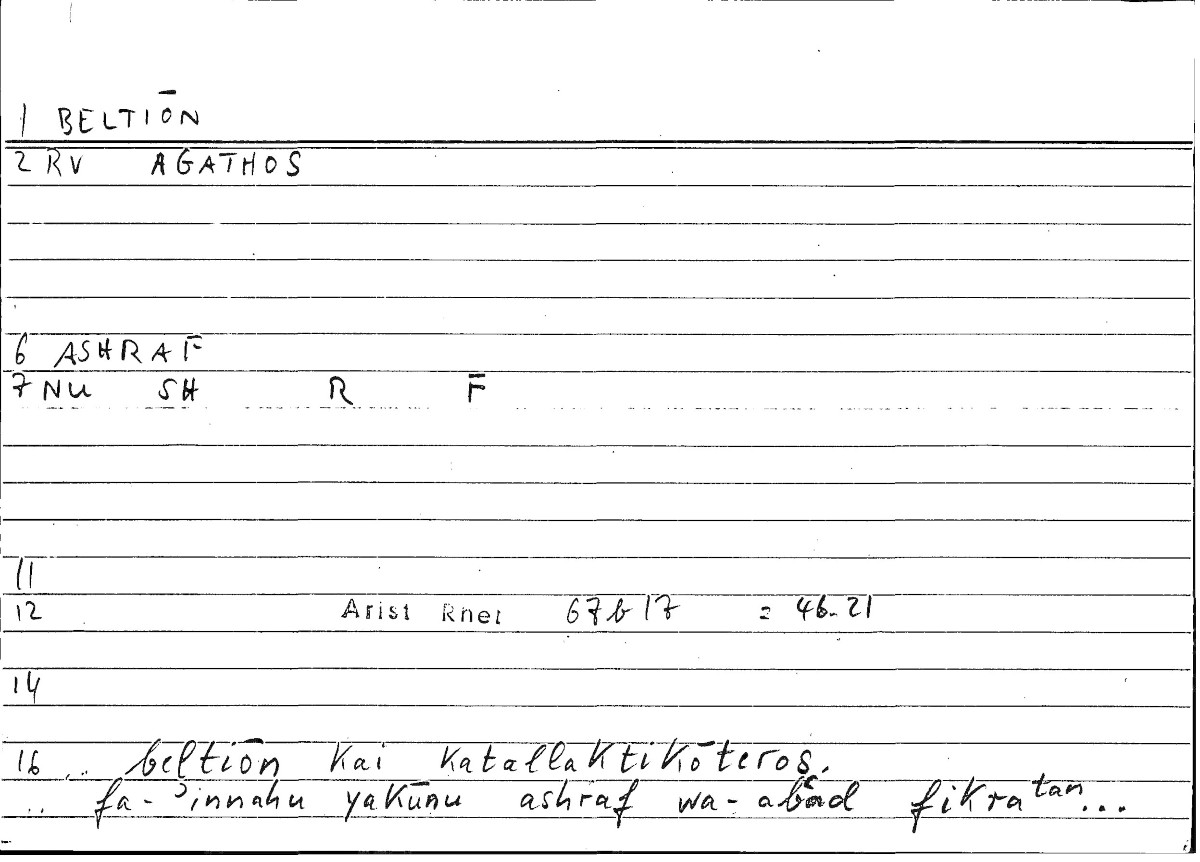 1 BELTIŌN
2 RV AGATHOS
6 ASHRAF
7 NU SH R F
11
12 Arist Rhet 67b17 = 46.21
14
16 ... beltiōn kai katallaktikōteros.
.. fa-ʾinnahu yakūnu ashraf wa- fikratan...